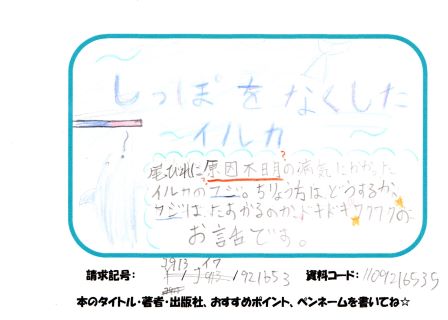 しっぽをなくした
〜イルカ
尾びれに原因不明の病気にかかった
イルカのフジ。ちりょう方はどうするか、
フジはたすかるのか、ドキドキワクワクの
お話です。
J913 イワ
請求記号: J913/921653 資料コード: 1109216535
本のタイトル・著者・出版社、おすすめポイント、ペンネームを書いてね☆